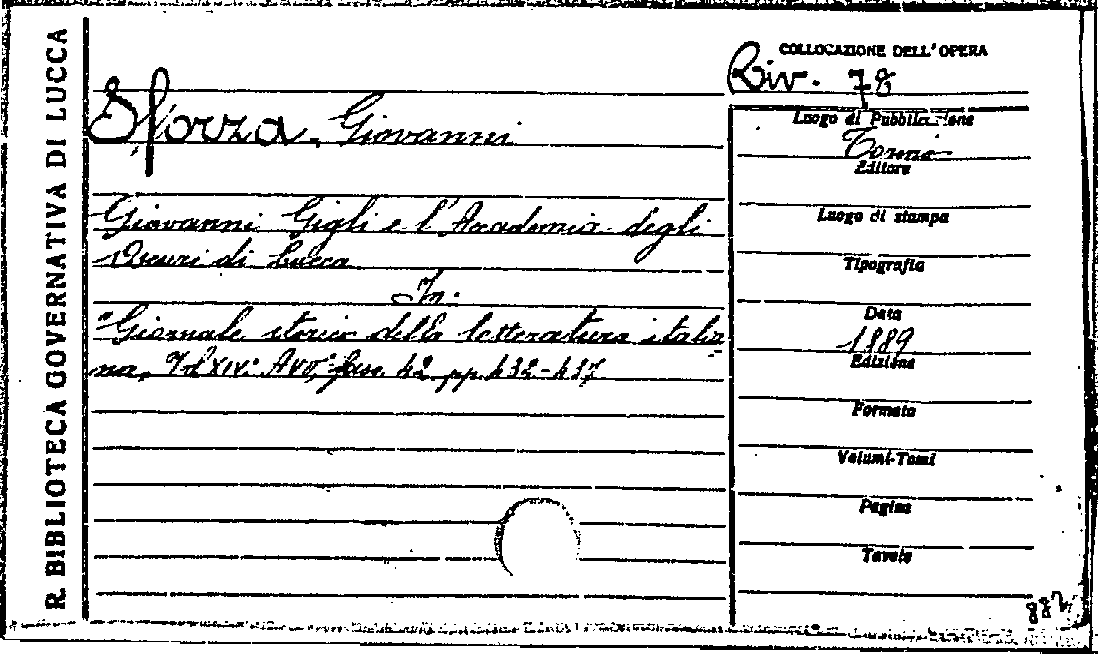 R. BIBLIOTECA GOVERNATIVA DI LUCCA
Sforza, Giovanni
Giovanni Gigli e l'Accademia degli
Oscuri di Lucca
In:
"Giornale storico della letteratura italia
na, Vol XIV: fasc. 42 pp. 432-437
COLLOCAZIONE DELL'OPERA
Riv. 78
Luogo di Pubblicazione
Torino
Editore
Luogo di stampa
Tipografia
Data
1889
Edizione
Formato
Volumi-Tomi
Pagine
Tavole